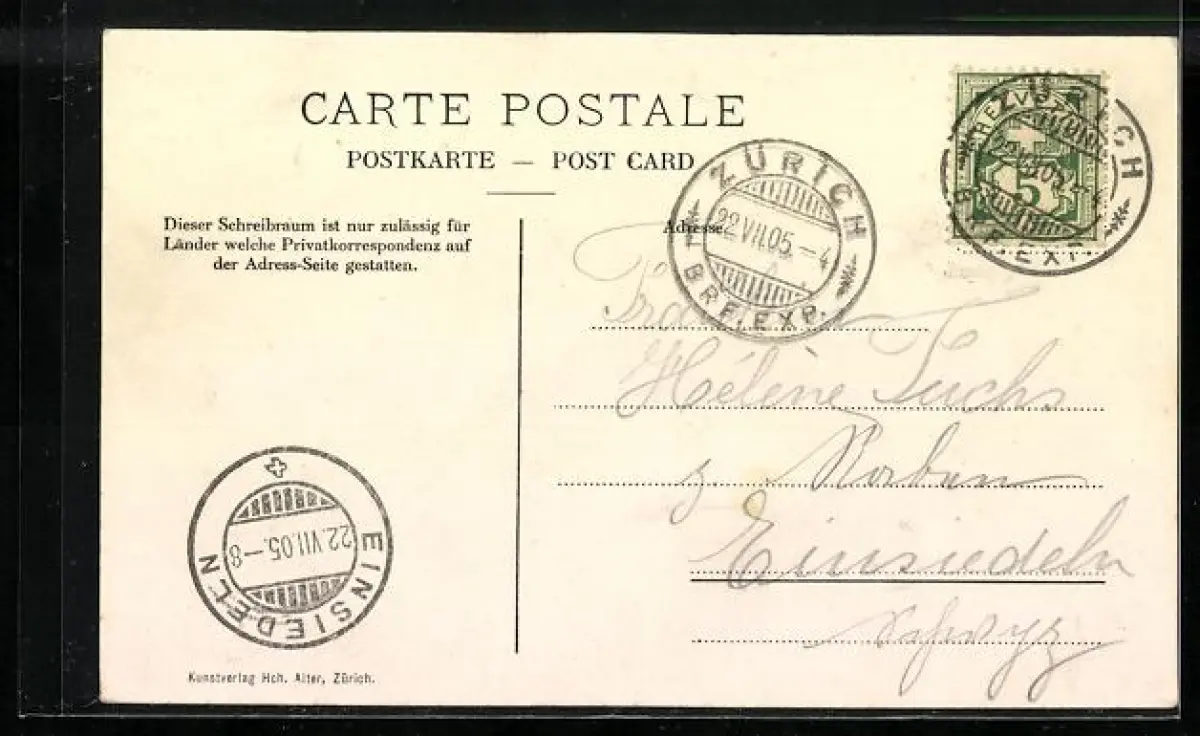 CARTE POSTALE
POSTKARTE — POST CARD
Dieser Schreibraum ist nur zulässig für
Länder welche Privatkorrespondenz auf
der Adress-Seite gestatten.
Adresse
ZÜRICH
22.VII.05.–4
BRF.EXP.
ZÜRICH
BRF.EXP.
5
Hélène Fuchs
z. Raben
Einsiedeln
Schwyz
EINSIEDELN
22.VII.05.–8
Kunstverlag Hch. Alter, Zürich.